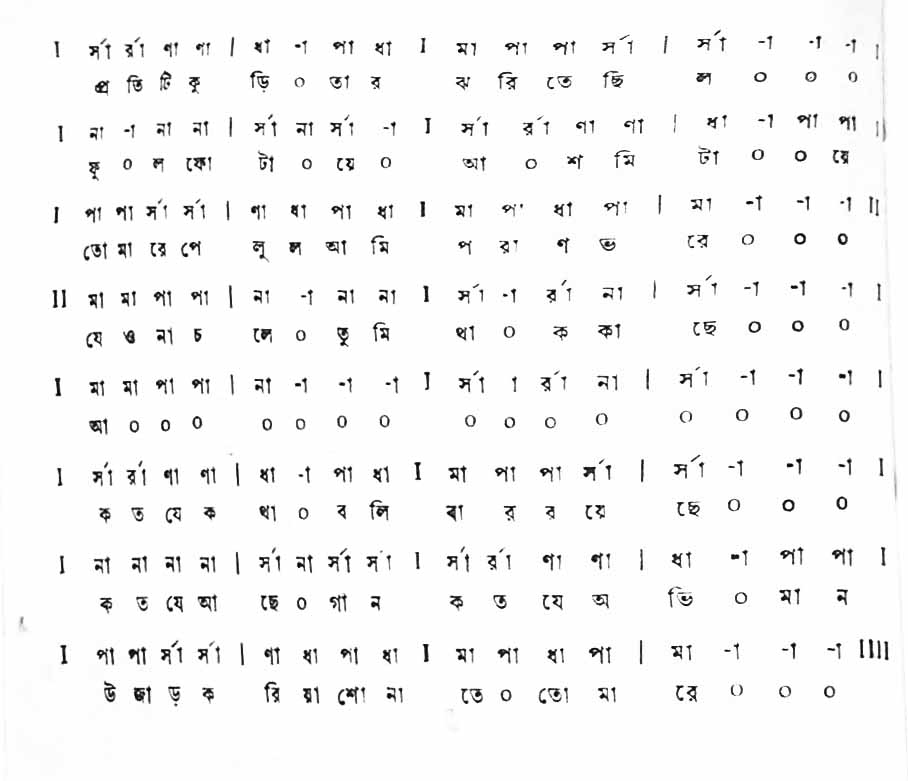 I র্সা র্রা ণা ণা | ধা -া পা ধা I মা পা পা র্সা | র্সা -া -া -া |
প্র তি টি কু ড়ি ০ তা র ঝ রি তে ছি ল ০ ০ ০
I না -া না না | র্সা না র্সা -া I র্সা র্রা ণা ণা | ধা -া পা পা ||
ফু ০ ল ফো টা ০ যে ০ আ ০ শ মি টা ০ ০ য়ে
I পা পা র্সা র্সা | ণা ধা পা ধা I মা প' ধা পা | মা -া -া -া II
তো মা রে পে লু ল আ মি প রা ণ ভ রে ০ ০ ০
II মা মা পা পা | না -া না না I র্সা -া র্রা না | র্সা -া -া -া I
যে ও না চ লে ০ তু মি থা ০ ক কা ছে ০ ০ ০
I মা মা পা পা | না -া -া -া I র্সা া র্রা না | র্সা -া -া -া I
আ ০ ০ ০ ০ ০ ০ ০ ০ ০ ০ ০ ০ ০ ০ ০
I র্সা র্রা ণা ণা | ধা -া পা ধা I মা পা পা র্সা | র্সা -া -া -া I
ক ত যে ক থা ০ ব লি বা র র য়ে ছে ০ ০ ০
I না না না না | র্সা না র্সা র্সা I র্সা র্রা ণা ণা | ধা -া পা পা I
ক ত যে আ ছে ০ গা ন ক ত যে অ ভি ০ মা ন
I পা পা র্সা র্সা | ণা ধা পা ধা I মা পা ধা পা | মা -া -া -া IIII
উ জা ড় ক রি য়া শো না তে ০ তো মা রে ০ ০ ০